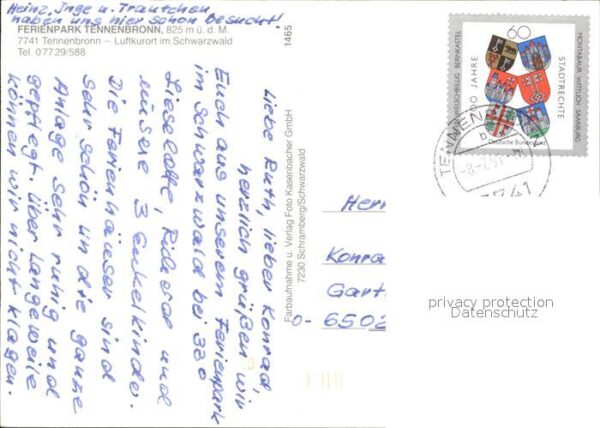 Heinz, Inge u. Trautchen
haben uns hier schon besucht!
FERIENPARK TENNENBRONN, 825 m ü. d. M.
7741 Tennenbronn – Luftkurort im Schwarzwald
Tel. 07729/588
1465
Liebe Ruth, lieber Konrad,
herzlich grüßen wir
Euch aus unserem Ferienpark
im Schwarzwald bei 32°
Lieselotte, Richard und
unsere 3 Enkelkinder.
Die Ferienhäuser sind
sehr schön und die ganze
Anlage sehr ruhig und
gepflegt. Über Langeweile
können wir nicht klagen.
Farbaufnahme u. Verlag Foto Kasenbacher GmbH
7230 Schramberg/Schwarzwald
60
700 JAHRE
STADTRECHTE
WELSCHBILLIG BERNKASTEL
MONTABAUR WITTLICH SAARBURG
Deutsche Bundespost
TENNENBRONN
b
7741
Herr
Konra
Gart
O- 6502
privacy protection
Datenschutz